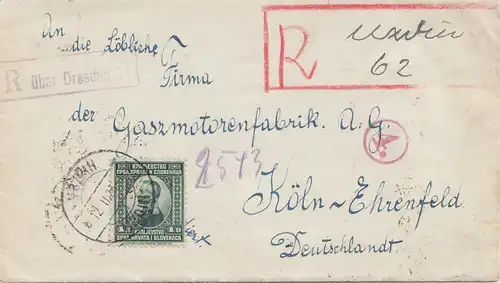 An
die Löbliche
Firma
der Gasmotorenfabrik A. G.
Köln-Ehrenfeld
Deutschland.
R über Dresden
R
62
2513
КРАЉЕВСТВО
СРБА, ХРВАТА И СЛОВЕНАЦА
1 1D
KRALJEVSTVO
SRBA, HRVATA I SLOVENACA